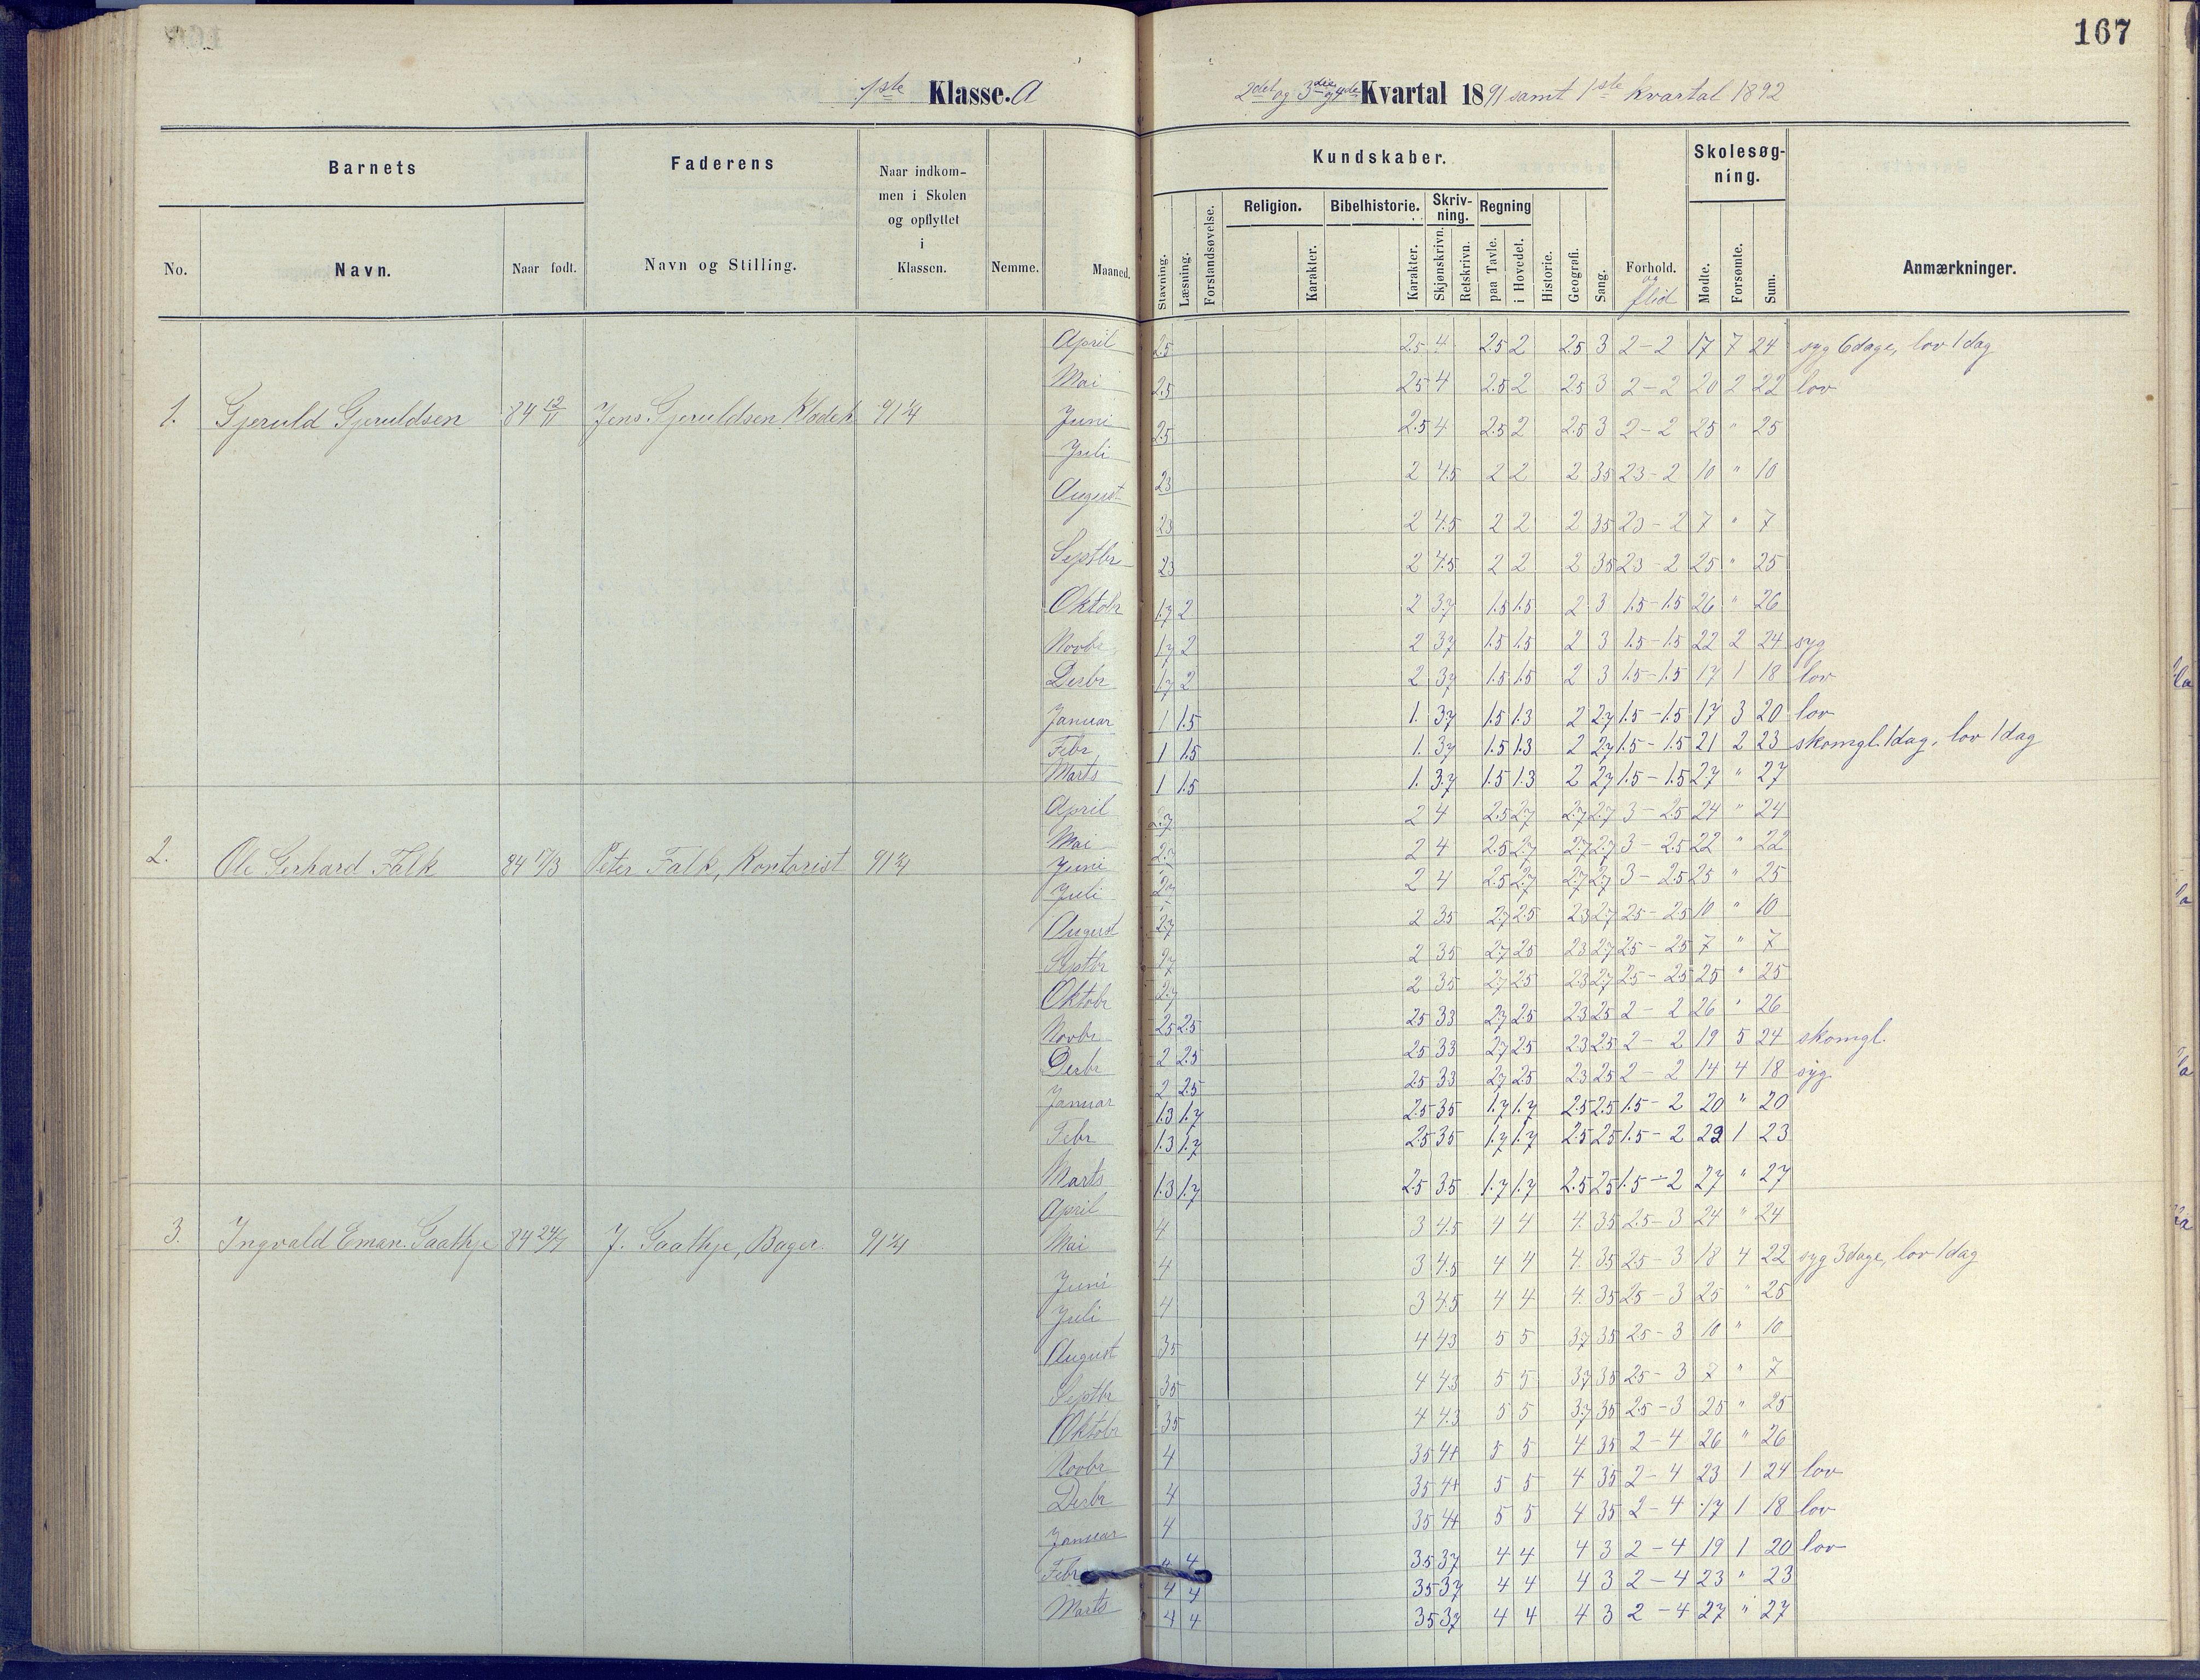 167
1ste Klasse. A
2det og 3die og 4de Kvartal 1891 samt 1ste Kvartal 1892
Barnets
Faderens
Naar indkom-
men i Skolen
og opflyttet
i
Klassen.
No.
Navn.
Naar født.
Navn og Stilling.
Nemme.
Maaned.
Kundskaber.
Skolesøg-
ning.
Stavning.
Læsning.
Forstandsøvelse.
Religion.
Karakter.
Bibelhistorie.
Karakter.
Skriv-
ning.
Skjønskrivn.
Retskrivn.
Regning
paa Tavle.
i Hovedet.
Historie.
Geografi.
Sang.
Forhold.
og
flid
Mødte.
Forsømte.
Sum.
Anmærkninger.
1. Gjeruld Gjeruldsen 84 12/11 Jens Gjeruldsen 91 2/4
April 2.5 2.5 4 2.5 2 2.5 3 2-2 17 7 24 syg 6 dage, lov 1 dag
Mai 2.5 2.5 4 2.5 2 2.5 3 2-2 20 2 22 lov
Juni 2.5 2.5 4 2.5 2 2.5 3 2-2 25 " 25
Juli 23 2 4.5 2 2 2 35 23-2 10 " 10
August 23 2 4.5 2 2 2 35 23-2 7 " 7
Septbr 23 2 4.5 2 2 2 35 23-2 25 " 25
Oktobr 1.7 2 2 3.7 1.5 1.5 2 3 1.5-1.5 26 " 26
Novbr 1.7 2 2 3.7 1.5 1.5 2 3 1.5-1.5 22 2 24 syg
Desbr 1.7 2 2 3.7 1.5 1.5 2 3 1.5-1.5 17 1 18 lov
Januar 1 1.5 1. 3.7 1.5 1.3 2 2.7 1.5-1.5 17 3 20 lov
Febr 1 1.5 1. 3.7 1.5 1.3 2 2.7 1.5-1.5 21 2 23 skomgl. 1 dag, lov 1 dag
Marts 1 1.5 1. 3.7 1.5 1.3 2 2.7 1.5-1.5 27 " 27
2. Ole Gerhard Falk 84 17/3 Peter Falk, Kontorist 91 2/4
April 2.7 2 4 2.5 2.7 2.7 2.7 3-2.5 24 " 24
Mai 2 4 2.5 2.7 2.7 2.7 3-2.5 22 " 22
Juni 2 4 2.5 2.7 2.7 2.7 3-2.5 25 " 25
Juli 2.7 2 35 2.7 2.5 23 2.7 25-25 10 " 10
August 27 2 35 27 25 23 27 25-25 7 " 7
Septbr 2.7 2 35 27 25 23 27 25-25 25 " 25
Oktobr 25 25 25 33 27 25 23 25 2-2 26 " 26
Novbr 2 25 25 33 27 25 23 25 2-2 19 5 24 skomgl.
Desbr 2 25 25 33 27 25 23 25 2-2 14 4 18 syg
Januar 1.3 1.7 2.5 35 1.7 1.7 2.5 2.5 1.5-2 20 " 20
Febr 1.3 1.7 25 35 1.7 1.7 25 25 1.5-2 22 1 23
Marts 1.3 1.7 2.5 3.5 1.7 1.7 2.5 25 1.5-2 27 " 27
3. Ingvald Eman. Gaathje 84 24/7 J. Gaathje, Bager. 91 2/4
April 4 3 4.5 4 4 4. 35 2.5-3 24 " 24
Mai 4 3 4.5 4 4 4. 35 25-3 18 4 22 syg 3 dage, lov 1 dag
Juni 4 3 4.5 4 4 4. 35 25-3 25 " 25
Juli 35 4 43 5 5 37 35 25-3 10 " 10
August 35 4 43 5 5 37 35 25-3 7 " 7
Septbr 35 4 4.3 5 5 37 35 25-3 25 " 25
Oktobr 4 35 4+ 5 5 4 35 2-4 26 " 26
Novbr 4 35 4+ 5 5 4 35 2-4 23 1 24 lov
Desbr 4 35 4+ 5 5 4 35 2-4 17 1 18 lov
Januar 4 4 35 37 4 4 4 3 2-4 19 1 20 lov
Febr 4 4 35 37 4 4 4 3 2-4 23 " 23
Marts 4 4 35 37 4 4 4 3 2-4 27 " 27